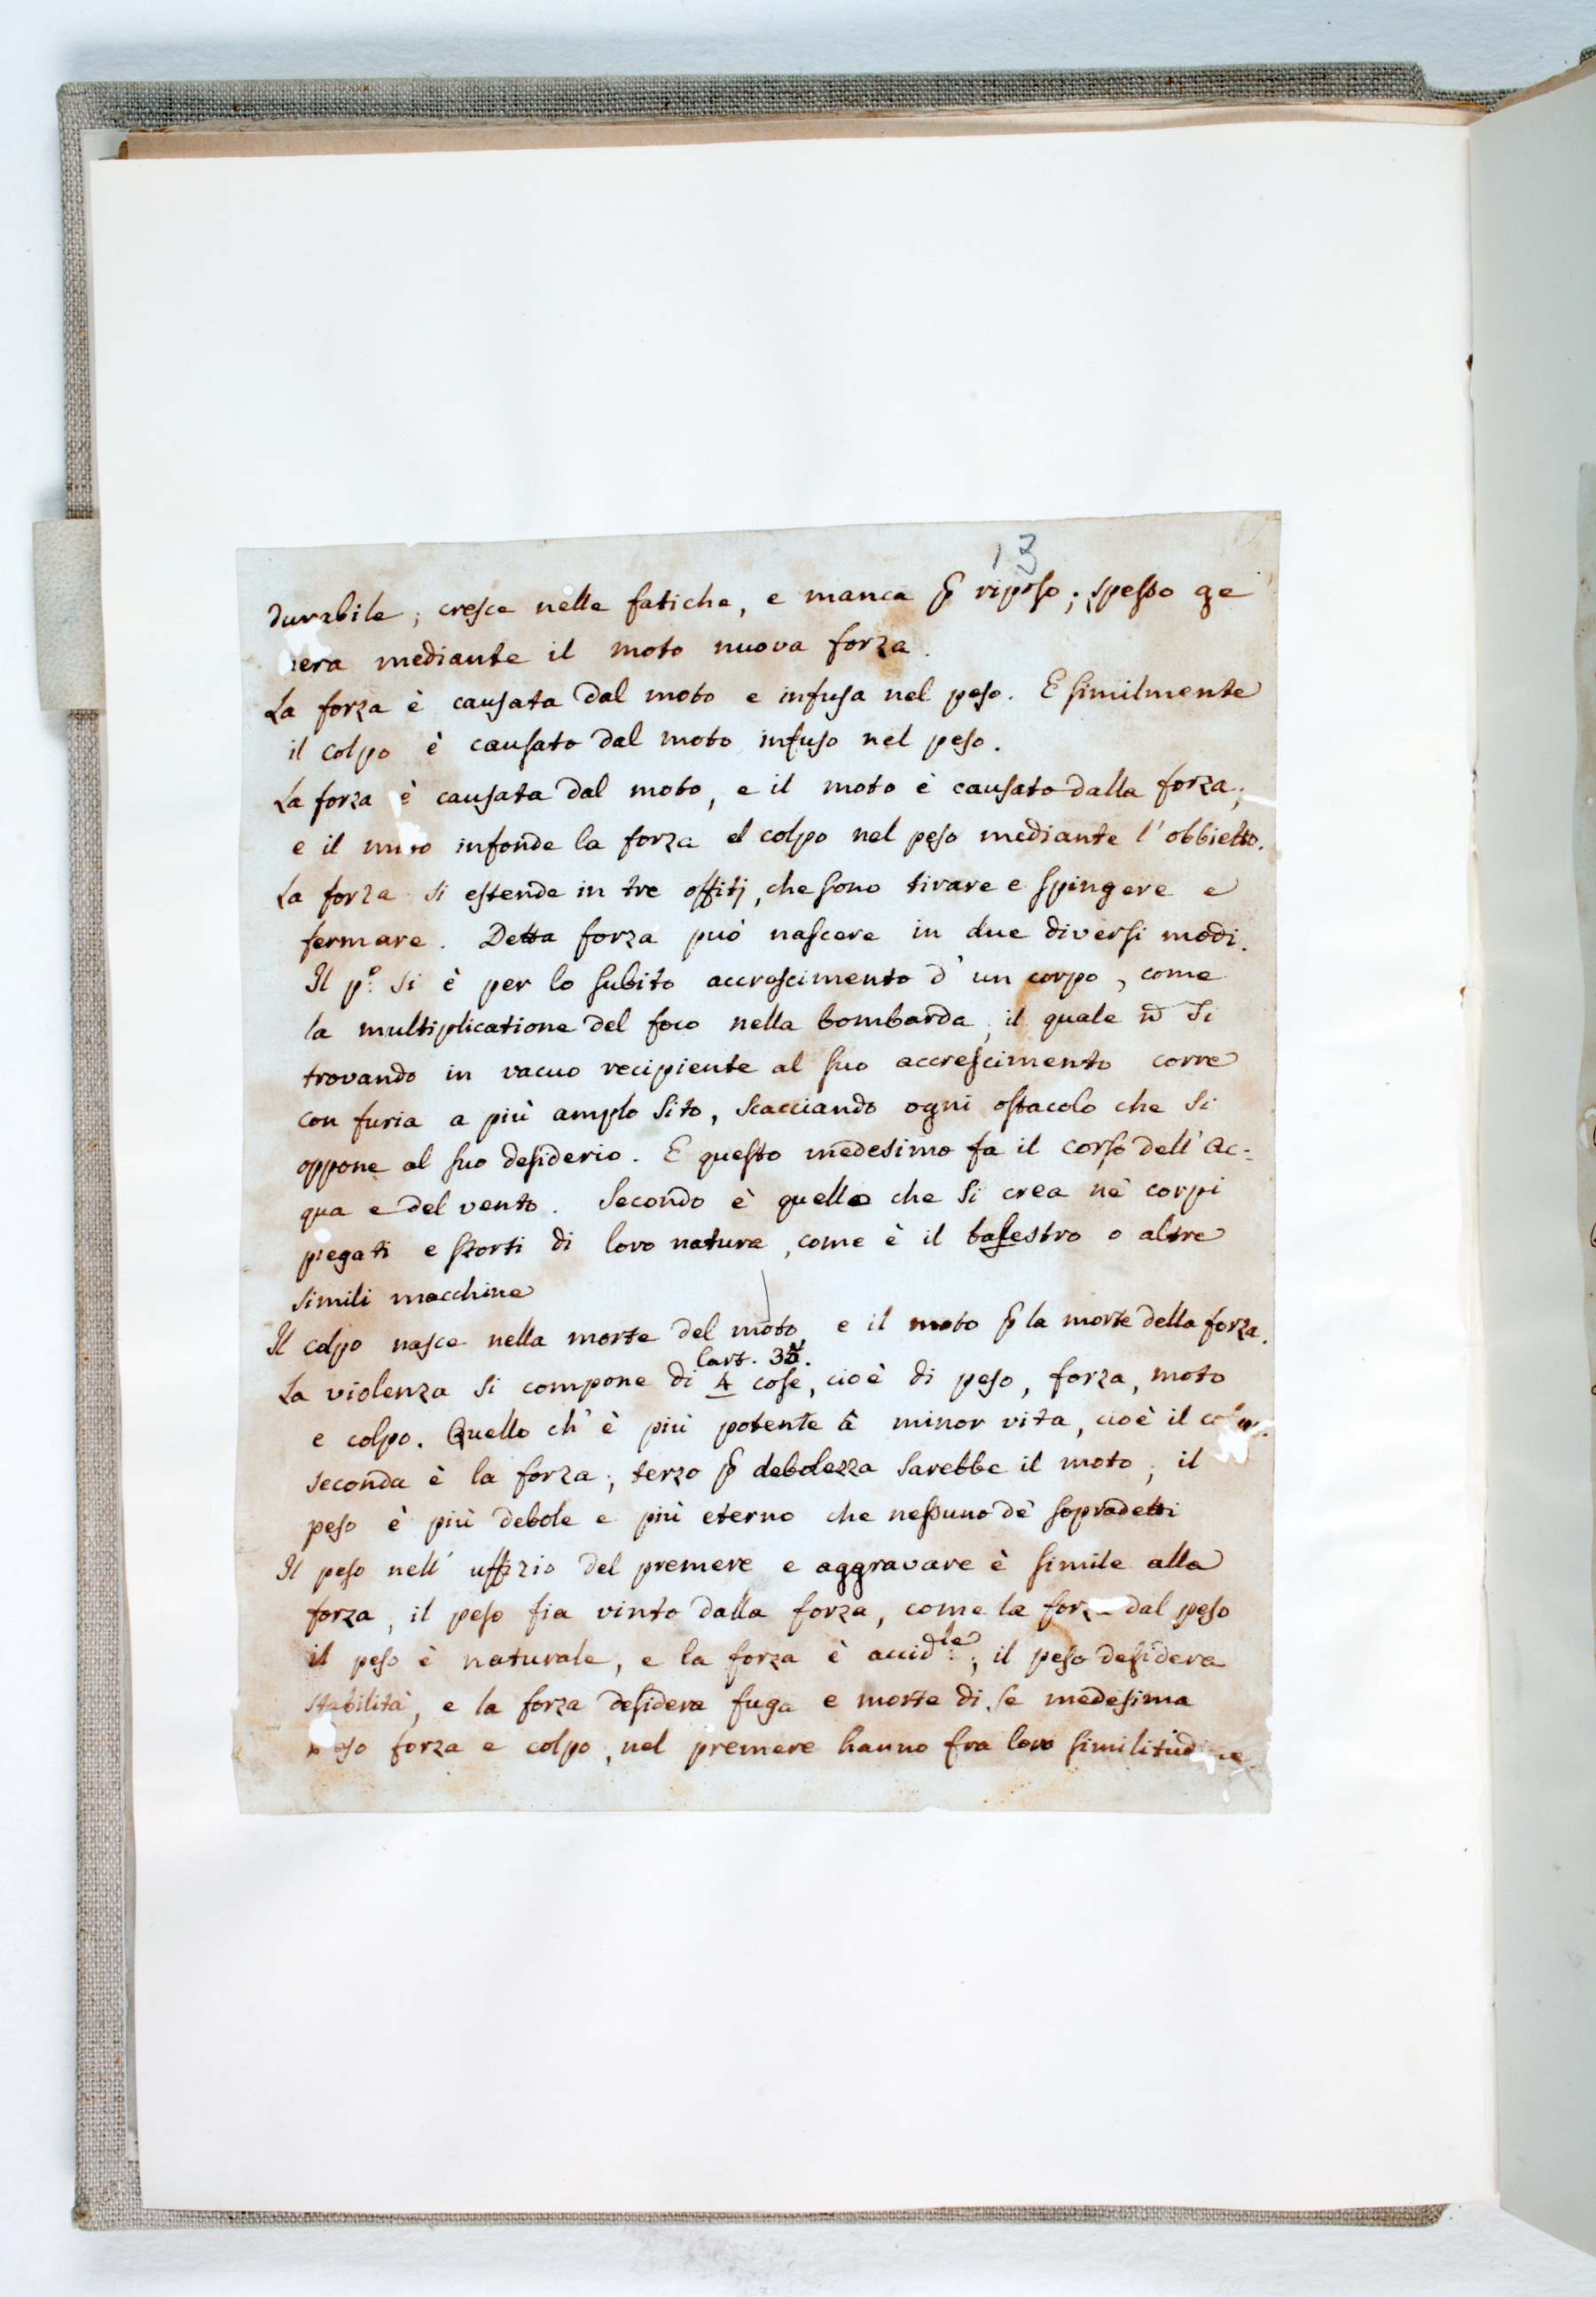 13
durabile; cresce nelle fatiche, e manca ꝑ riposo; spesso ge
nera mediante il moto nuova forza.
La forza è causata dal moto e infusa nel peso. E similmente
il colpo è causato dal moto infuso nel peso.
La forza è causata dal moto, e il moto è causato dalla forza;
e il moto infonde la forza el colpo nel peso mediante l'obbietto.
La forza si estende in tre offitj, che sono tirare e spingere e
fermare. Detta forza può nascere in due diversi modi.
Il pº. si è per lo subito accroscimento d'un corpo, come
la multiplicatione del foco nella bombarda, il quale nō si
trovando in vacuo recipiente al suo accrescimento corre
con furia a più amplo sito, scacciando ogni ostacolo che si
oppone al suo desiderio. E questo medesimo fa il corso dell'Ac-
qua e del vento. Secondo è quello che si crea ne' corpi
piegati e storti di loro natura, come è il balestro o altre
simili macchine
Il colpo nasce nella morte del moto, e il moto ꝑ la morte della forza.
Cart. 35.
La violenza si compone di 4 cose, cioè di peso, forza, moto
e colpo. Quello ch'è più potente à minor vita, cioè il colpo.
seconda è la forza; terzo ꝑ debolezza sarebbe il moto; il
peso è più debole e più eterno che nessuno de' sopradetti
Il peso nell'uffizio del premere e aggravare è simile alla
forza, il peso fia vinto dalla forza, come la forza dal peso
il peso è naturale, e la forza è accid:le; il peso desidera
stabilità, e la forza desidera fuga e morte di se medesima
peso forza e colpo, nel premere hanno fra loro similitudine